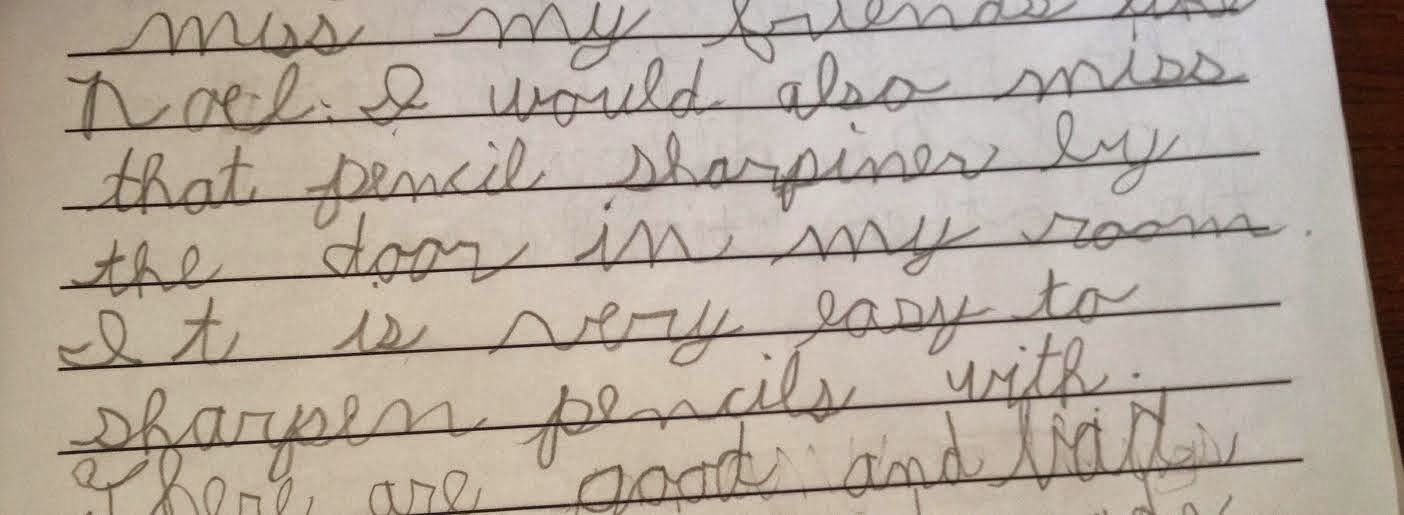 miss my friends like
Noel. I would also miss
that pencil sharpiner by
the door in my room.
It is very easy to
sharpen pencils with.
There are good and bad